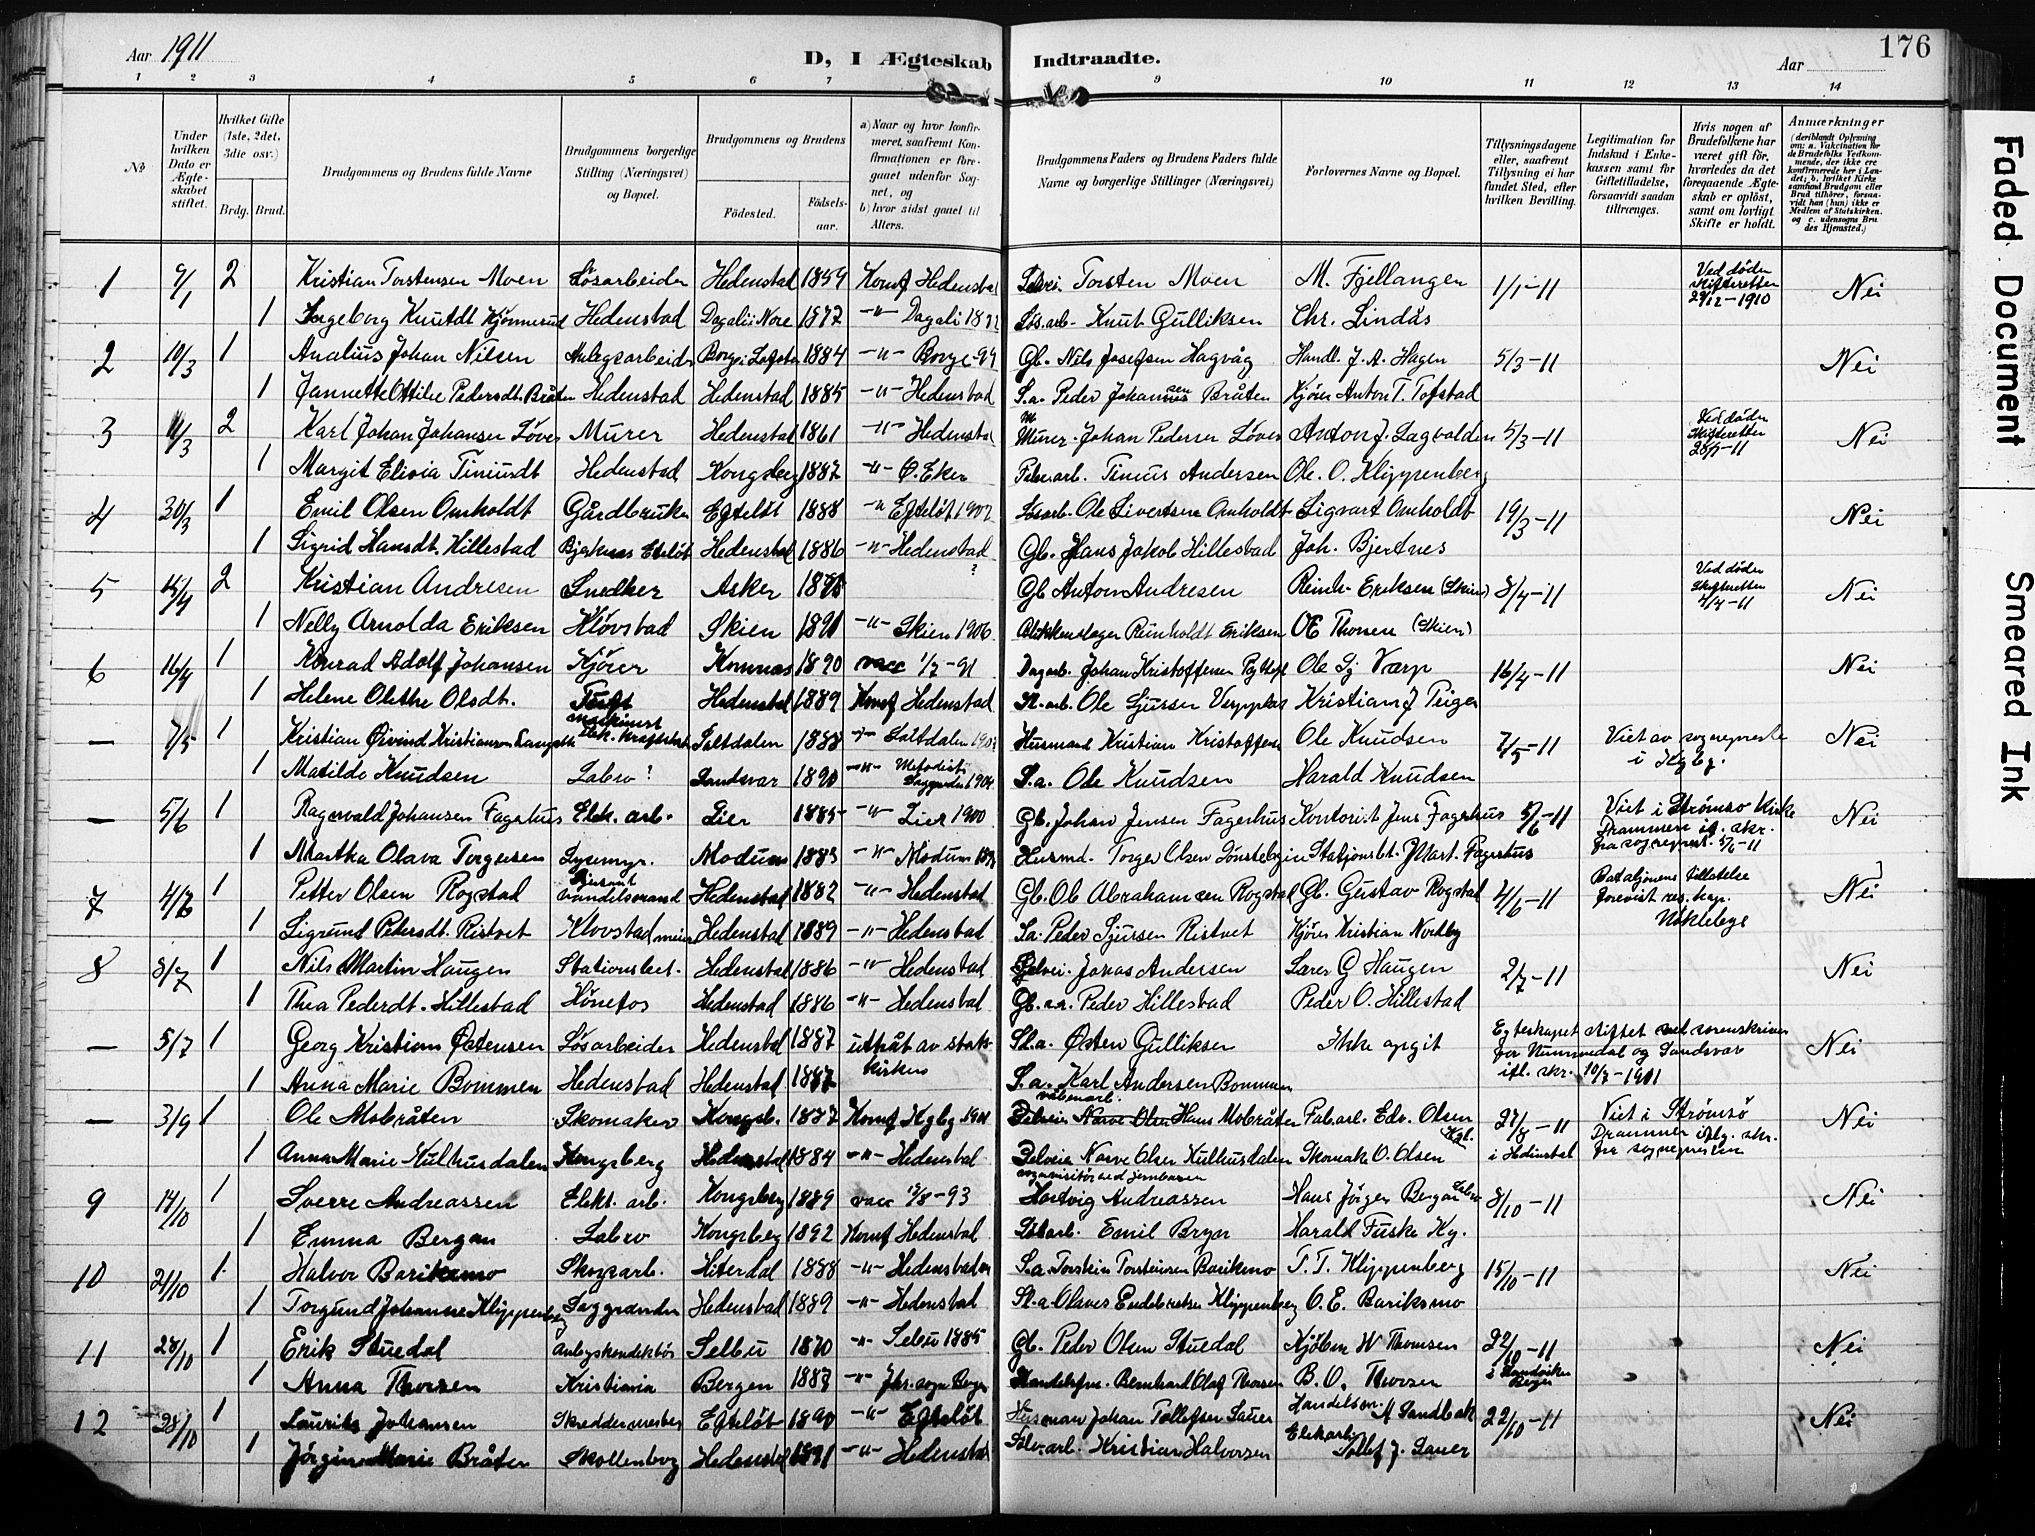 Aar 1911
D, I Ægteskab Indtraadte.
Aar
176
1 2 3 4 5 6 7 9 10 11 12 13 14
№
Under hvilken Dato er Ægteskabet stiftet.
Hvilket Gifte (1ste, 2det, 3die osv.)
Brdg. Brud.
Brudgommens og Brudens fulde Navne
Brudgommens borgerlige Stilling (Næringsvei) og Bopæl.
Brudgommens og Brudens
Fødested.
Fødselsaar.
a) Naar og hvor konfirmeret, saafremt Konfirmationen er foregaaet udenfor Sognet, og
b) hvor sidst gaaet til Alters.
Brudgommens Faders og Brudens Faders fulde Navne og borgerlige Stillinger (Næringsvei)
Forlovernes Navne og Bopæl.
Tillysningsdagene eller, saafremt Tillysning ei har fundet Sted, efter hvilken Bevilling.
Legitimation for Indskud i Enkekassen samt for Giftetilladelse, forsaavidt saadan tiltrænges.
Hvis nogen af Brudefolkene har været gift før, hvorledes da det foregaaende Ægteskab er opløst, samt om lovligt Skifte er holdt.
Anmærkninger
(deriblandt Oplysning om: a. Vakcination for de Brudefolks Vedkommende, der ikke ere konfirmerede her i Landet; b. hvilket Kirkesamfund Brudgom eller Brud tilhører, forsaavidt han (hun) ikke er Medlem af Statskirken, og c. udensogns Brudes Hjemsted.)
1 9/1 2 Kristian Torstensen Moen Løsarbeider Hedenstad 1859 Konf Hedenstad Torsten Moen M. Fjellangen 1/1-11 Ved døden skifteretten 29/12-1910 Nei
1 Ingeborg Knutdt Kjønnerud Hedenstad Dagali i Nore 1877 -"- Dagali Løs.arb. Knut Gulliksen Chr. Lindås
2 10/3 1 Analius Johan Nilsen Anlegsarbeider 1884 -"- Borge -99 Gb. Nils Josefsen Hagvåg Handl. J. A. Hagen 5/3-11 Nei
1 Jannette Ottilie Pedersdt. Bråten Hedenstad Hedenstad 1885 -"- Hedenstad S.a. Peder Johannessen Bråten Kjører Anton T. Tofstad
3 11/3 2 Karl Johan Johansen Løver Murer Hedenstad 1861 -"- Hedenstad Murer Johan Pedersen Løver Anton J. Lagvolden 5/3-11 Ved døden skifteretten -11 Nei
1 Margit Elivia Tiniusdt Hedenstad Kongsberg 1887 -"- Ø. Eker Tinius Andersen Ole. O. Klippenberg
4 30/3 1 Emil Olsen Omholdt Gårdbruker Efteløt 1888 -"- Efteløt 1902 Løsarb. Ole Sivertsen Omholdt Sigvart Omholdt 19/3-11 Nei
1 Sigrid Hansdt. Hillestad Bjerknes Efteløt Hedenstad 1886 -"- Hedenstad Gb. Hans Jakob Hillestad Joh. Bjertnes
5 15/4 2 Kristian Andresen Snedker Asker ? Gb Anton Andresen Reinh. Eriksen (Skien) 8/4-11 Ved døden Skifteretten 4/4-11 Nei
1 Nelly Arnolda Eriksen Kløvstad Skien 1891 -"- Skien 1906 Blikkenslager Reinholdt Eriksen O E Thonen (Skien)
6 16/4 1 Konrad Adolf Johansen Kjører Komnæs 1890 vacc 1/7-91 Dagarb. Johan Kristoffersen Ole Sj Værp 16/4-11 Nei
1 Helene Olethe Olsdt. Tuft Hedenstad 1889 Konf Hedenstad Ole Sjursen Kristian J Teigen
— 7/5 1 Kristian Øivind Kristiansen maskinist Elek. kraftstat. Saltdalen 1888 -"- Saltdalen Husmand Kristian Kristoffersen Ole Knudsen 7/5-11 Viet av sogneprest i Kgbg. Nei
1 Matilde Knudsen Labro ? Sandsvær 1890 -"- Metodist S.a. Ole Knudsen Harald Knudsen
— 5/6 1 Ragnvald Johansen Fagerhus Elek. arb. Lier 1885 -"- Lier 1900 Gb. Johan Jensen Fagerhus Kontorist Jens Fagerhus 5/6-11 Viet i Strømsø Kirke Drammen ifl. skr. fra sogneprest. 5/6-11 Nei
1 Martha Olava Torgersen Lysemyr. Modum 1883 -"- Modum Husmd. Torger Olsen Stationsbt. J Mart. Fagerhus
7 4/6 1 Petter Olsen Rogstad Sersjant handelsmand Hedenstad 1882 -"- Hedenstad Gb. Ole Abrahamsen Rogstad Gb. Gustav Rogstad 4/6-11 Bataljonens tillatelse forevist res. kap. Nei
1 Sigrund Petersdt. Ristvet Kløvstad Hedenstad 1889 -"- Hedenstad Sa. Peder Sjursen Ristvet Kjører Kristian Nordby
8 8/7 1 Nils Martin Haugen Stationsbet. Hedenstad 1886 -"- Hedenstad Jonas Andersen Lærer G Haugen 2/7-11 Nei
1 Thea Pederdt. Hillestad Hønefos Hedenstad 1886 -"- Hedenstad Gb. Peder Hillestad Peder O. Hillestad
— 5/7 1 Georg Kristian Østensen Løsarbeider Hedenstad 1887 utträt av statskirken Sl.a. Østen Gulliksen Ikke opgit Egteskapet stiftet ved sorenskriver for Nummedal og Sandsvær ifl. skr. 10/7-1911 Nei
1 Anna Marie Bommen Hedenstad Hedenstad 1887 S.a. Karl Andersen Bommen
— 3/9 1 Ole Mobråten Skomaker Kongsb. 1877 Konf Kgbg våbenarb. Hans Mobråten Fab.arb. Edv. Olsen Kgb. 27/8-11 i Hedenstad Viet i Strømsø Drammen iflg. skr. fra sognepresten Nei
1 Anna Marie Kulhusdalen Kongsberg Hedenstad 1884 -"- Hedenstad Narve Olsen Kulhusdalen Skomak O. Olsen
9 14/10 1 Sverre Andreassen Elekt. arb. Kongsberg 1889 vacc /8-93 Hartvig Andreassen Hans Jörgen Bergan Labro 8/10-11 Nei
1 Emma Bergan Labro Kongsberg 1892 Konf Hedenstad Emil Bergan Harald Fuske Kg.
10 21/10 1 Halvor Bariksmo Skogsarb. Hiterdal 1888 -"- Hedenstad S.a. Torstein Torsteinsen Bariksmo T. T. Klippenberg 15/10-11 Nei
1 Torgund Johanne Klippenberg Saggrenden Hedenstad 1889 -"- Hedenstad Sl.a Olaves Endebretsen Klippenberg O. E. Bariksmo
11 28/10 1 Erik Stuedal Selbu 1870 -"- Selbu 1885 Gb. Peder Olsen Stuedal Kjøbm W Thomsen 22/10-11 i Sandviken Bergen Nei
1 Anna Thorsen Kristiania Bergen 1883 -"- Bernhard Olaf Thorsen B. O. Thorsen
12 28/10 1 Laurits Johansen Skreddermester Efteløt 1890 -"- Efteløt Husman Johan Tollefsen Sauer Handelsm. A Sandbæk 22/10-11 Nei
1 Jørgine Marie Bråten Skollenborg Hedenstad 1891 -"- Hedenstad Kristian Halvorsen Elekarb. Tollef J. Sauer
Faded Document
Smeared Ink